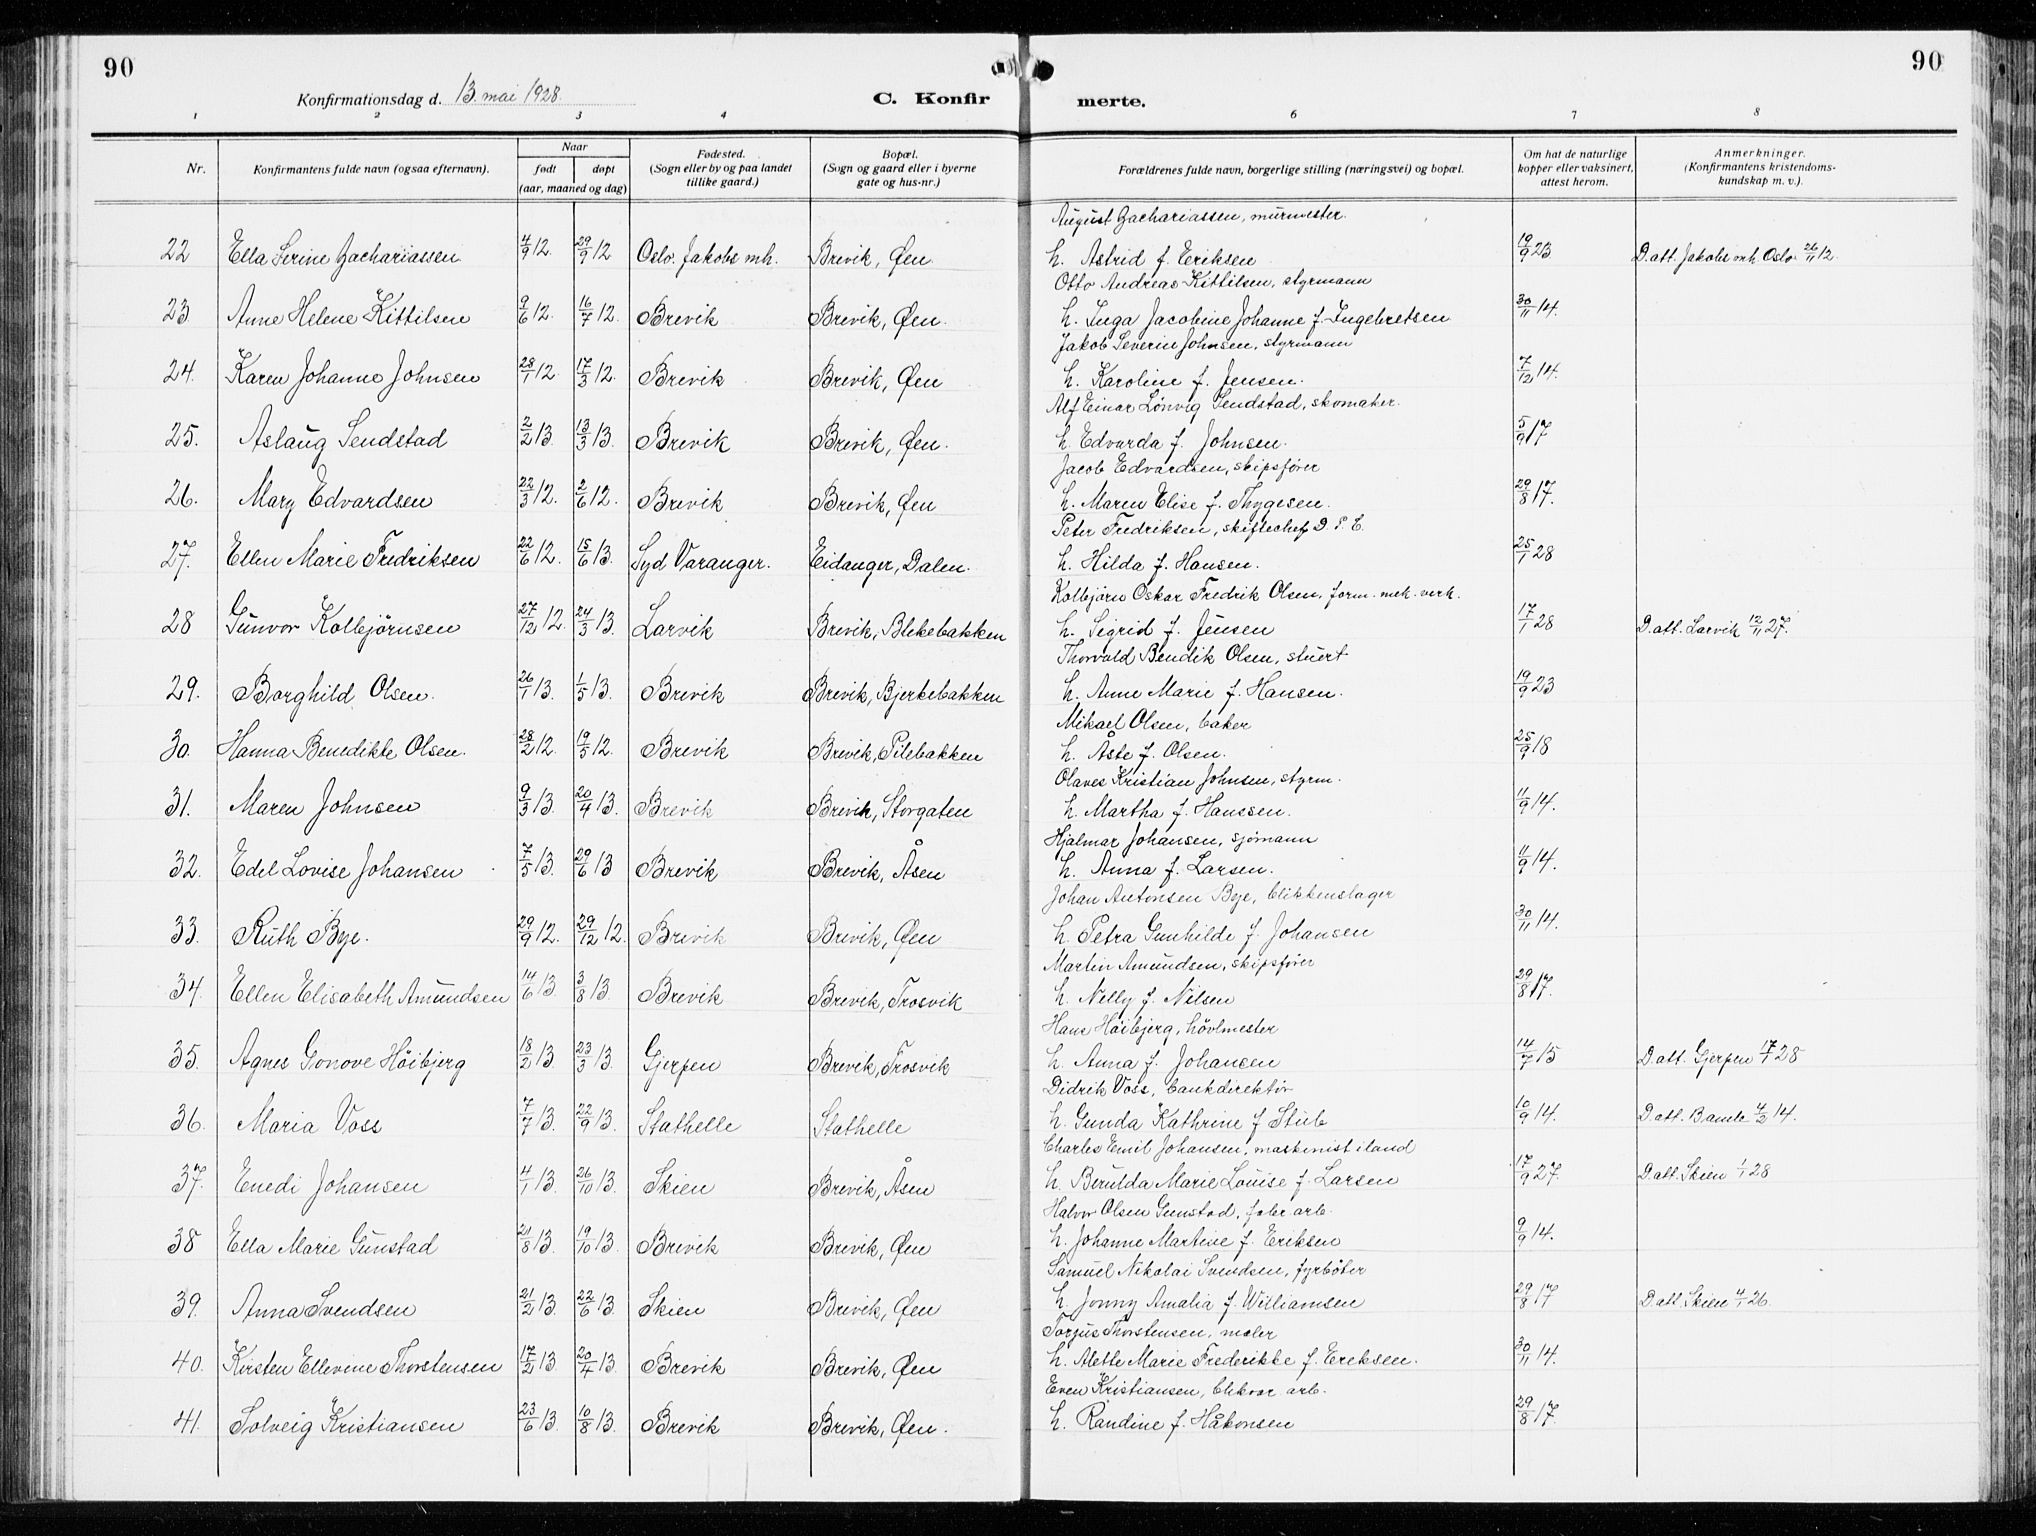 90
90
Konfirmationsdag d. 13. mai 1928.
C. Konfir
merte.
1 2 3 4 5 6 7 8
Nr.
Konfirmantens fulde navn (ogsaa efternavn).
Naar
født døpt
(aar, maaned og dag)
Fødested.
(Sogn eller by og paa landet
tillike gaard.)
Bopæl.
(Sogn og gaard eller i byerne
gate og hus-nr.)
Forældrenes fulde navn, borgerlige stilling (næringsvei) og bopæl.
Om hat de naturlige
kopper eller vaksinert,
attest herom.
Anmerkninger.
(Konfirmantens kristendoms-
kundskap m. v.).
August Zachariassen, murmester.
22 Ella Serine Zachariassen 4/9 12. 29/9 12 Oslo. Jakobs mh. Brevik, Øen. h. Astrid f. Eriksen 19/9 23 D. att. Jakobs mh. Oslo 26/11 12.
Otto Andreas Kittilsen, styrmann
23 Anne Helene Kittilsen 9/6 12. 16/7 12. Brevik Brevik, Øen. h. Inga Jacobine Johanne f. Ingebretsen 30/11 14.
Jakob Severin Johnsen, styrmann
24. Karen Johanne Johnsen 28/1 12. 17/3 12. Brevik Brevik, Øen h. Karoline f. Jensen. 7/12 14.
Alf Einar Lönvig Sendstad, skomaker.
25. Aslaug Sendstad 2/2 13. 13/3 13. Brevik Brevik, Øen. h. Edvarda f. Johnsen. 5/9 17
Jacob Edvardsen, skipsfører
26. Mary Edvardsen 22/3 12. 2/6 12. Brevik Brevik, Øen h. Maren Elise f. Thygesen. 29/8 17.
Peter Fredriksen, skiftechef D. P. C.
27. Ellen Marie Fredriksen 22/6 12. 15/6 13. Syd Varanger. Eidanger, Dalen. h. Hilda f. Hansen. 25/1 28
Kolbjörn Oskar Fredrik Olsen, form. mek. verk.
28 Gunvor Kolbjörnsen 27/12 12. 24/3 13. Larvik Brevik, Blekebakken h. Sigrid f. Jensen 17/1 28 D. att. Larvik 12/11 27.
Thorvald Bendik Olsen, stuert
29. Borghild Olsen. 26/1 13. 1/5 13. Brevik Brevik, Bjerkebakken h. Anne Marie f. Hansen. 19/9 23
Mikael Olsen, baker
30. Hanna Benedikte Olsen. 28/2 12. 19/5 12. Brevik Brevik, Pilebakken h. Åste f. Olsen. 25/9 18
Olaves Kristian Johnsen, styrm.
31. Maren Johnsen 9/3 13. 20/4 13. Brevik Brevik, Storgaten h. Martha f. Hanssen. 11/9 14.
Hjalmar Johansen, sjømann
32. Edel Lovise Johansen 7/5 13. 29/6 13 Brevik Brevik, Åsen h. Anna f. Larsen. 11/9 14.
Johan Antonsen Bye, blikkenslager
33. Ruth Bye. 29/9 12. 29/12 12. Brevik Brevik, Øen h. Petra Gunhilde f. Johansen 30/11 14.
Martin Amundsen, skipsfører
34. Ellen Elisabeth Amundsen 14/6 13. 3/8 13. Brevik Brevik, Trosvik h. Nelly f. Nilsen 29/8 17.
Hans Höibjerg, hövlmester
35. Agnes Gonove Höibjerg 18/2 13. 23/3 13. Gjerpen Brevik, Trosvik h. Anna f. Johansen 14/7 15 D. att. Gjerpen 17/1 28
Didrik Voss, bankdirektör
36. Maria Voss 7/7 13. 22/9 13. Stathelle Stathelle h. Gunda Kathrine f. Stub 10/9 14. D. att. Bamle 4/2 14.
Charles Emil Johansen, maskinist iland
37. Enedi Johansen 4/1 13. 26/10 13. Skien Brevik, Åsen h. Berulda Marie Louise f. Larsen 17/9 27. D. att. Skien 1/1 28
Halvor Olsen Gunstad, fabr. arb.
38 Ella Marie Gunstad 21/8 13. 19/10 13. Brevik Brevik, Øen h. Johanne Martine f. Eriksen 9/9 14.
Samuel Nikolai Svendsen, fyrböter
39. Anna Svendsen 21/2 13. 22/6 13. Skien Brevik, Øen h. Jonny Amalia f. Williamsen 29/8 17 D. att. Skien 4/1 26.
Torjus Thorstensen, maler
40. Kirsten Ellevine Thorstensen 17/2 13. 20/4 13. Brevik Brevik, Øen h. Alette Marie Frederikke f. Ereksen. 30/11 14.
Even Kristiansen, blikvar. arb.
41. Solveig Kristiansen 23/6 13. 10/8 13. Brevik Brevik, Øen. h. Randine f. Håkonsen 29/8 17.